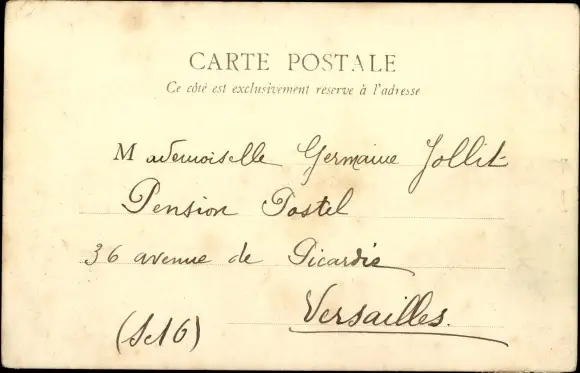 CARTE POSTALE
Ce côté est exclusivement réservé à l'adresse
Mademoiselle Germaine Jollit
Pension Postel
36 avenue de Picardie
Versailles.
(S et O)